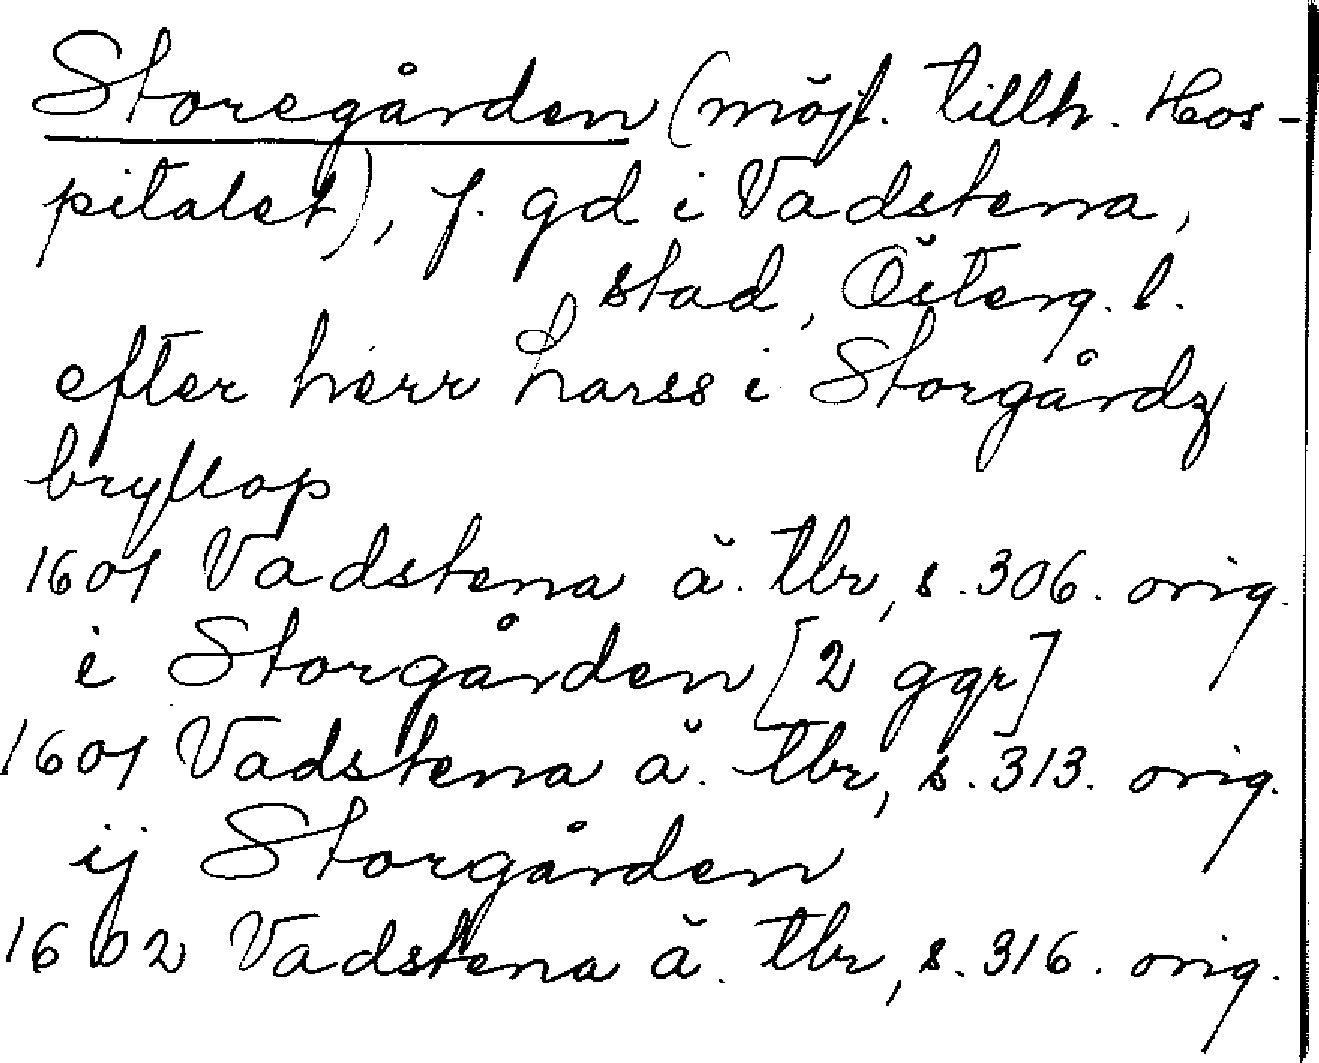 Storegården (möjl. tillh. Hos-
pitalet), f. gd i Vadstena,
stad, Österg. l.
efter herr Larss i Storgårdz
bryllop
1601 Vadstena ä. tbr, s. 306. orig.
i Storgården [2 ggr]
1601 Vadstena ä. tbr, s. 313. orig.
ij Storgården
1602 Vadstena ä. tbr, s. 316. orig.